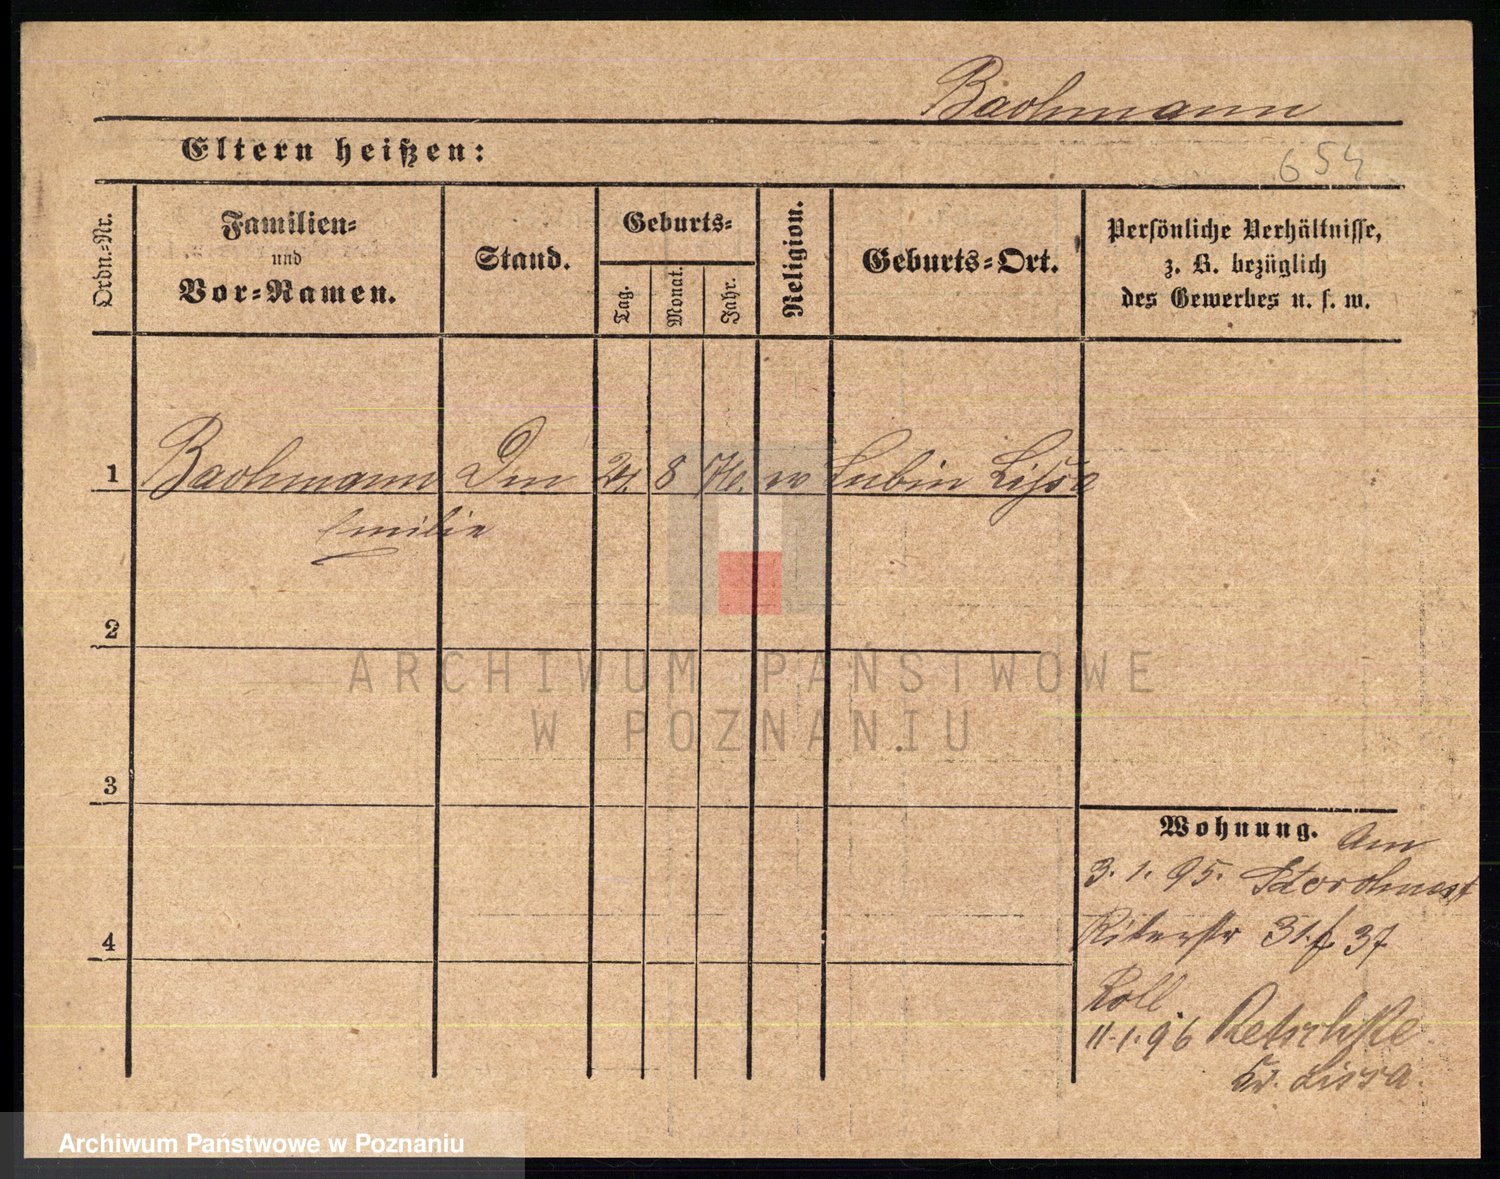 Bachmann
Eltern heißen:
654
Ordn.-Nr.
Familien-
und
Vor-Namen.
Stand.
Geburts-
Tag.
Monat.
Jahr.
Religion.
Geburts-Ort.
Persönliche Verhältnisse,
z. B. bezüglich
des Gewerbes u. s. w.
1 Bachmann 8 Lubin Lissa
Emilie
2
3
4
Wohnung.
3. 1. 95.
Ritterstr 31. 37
11.1.96 Retschke
Kr. Lissa.
ARCHIWUM PAŃSTWOWE
W POZNANIU
Archiwum Państwowe w Poznaniu